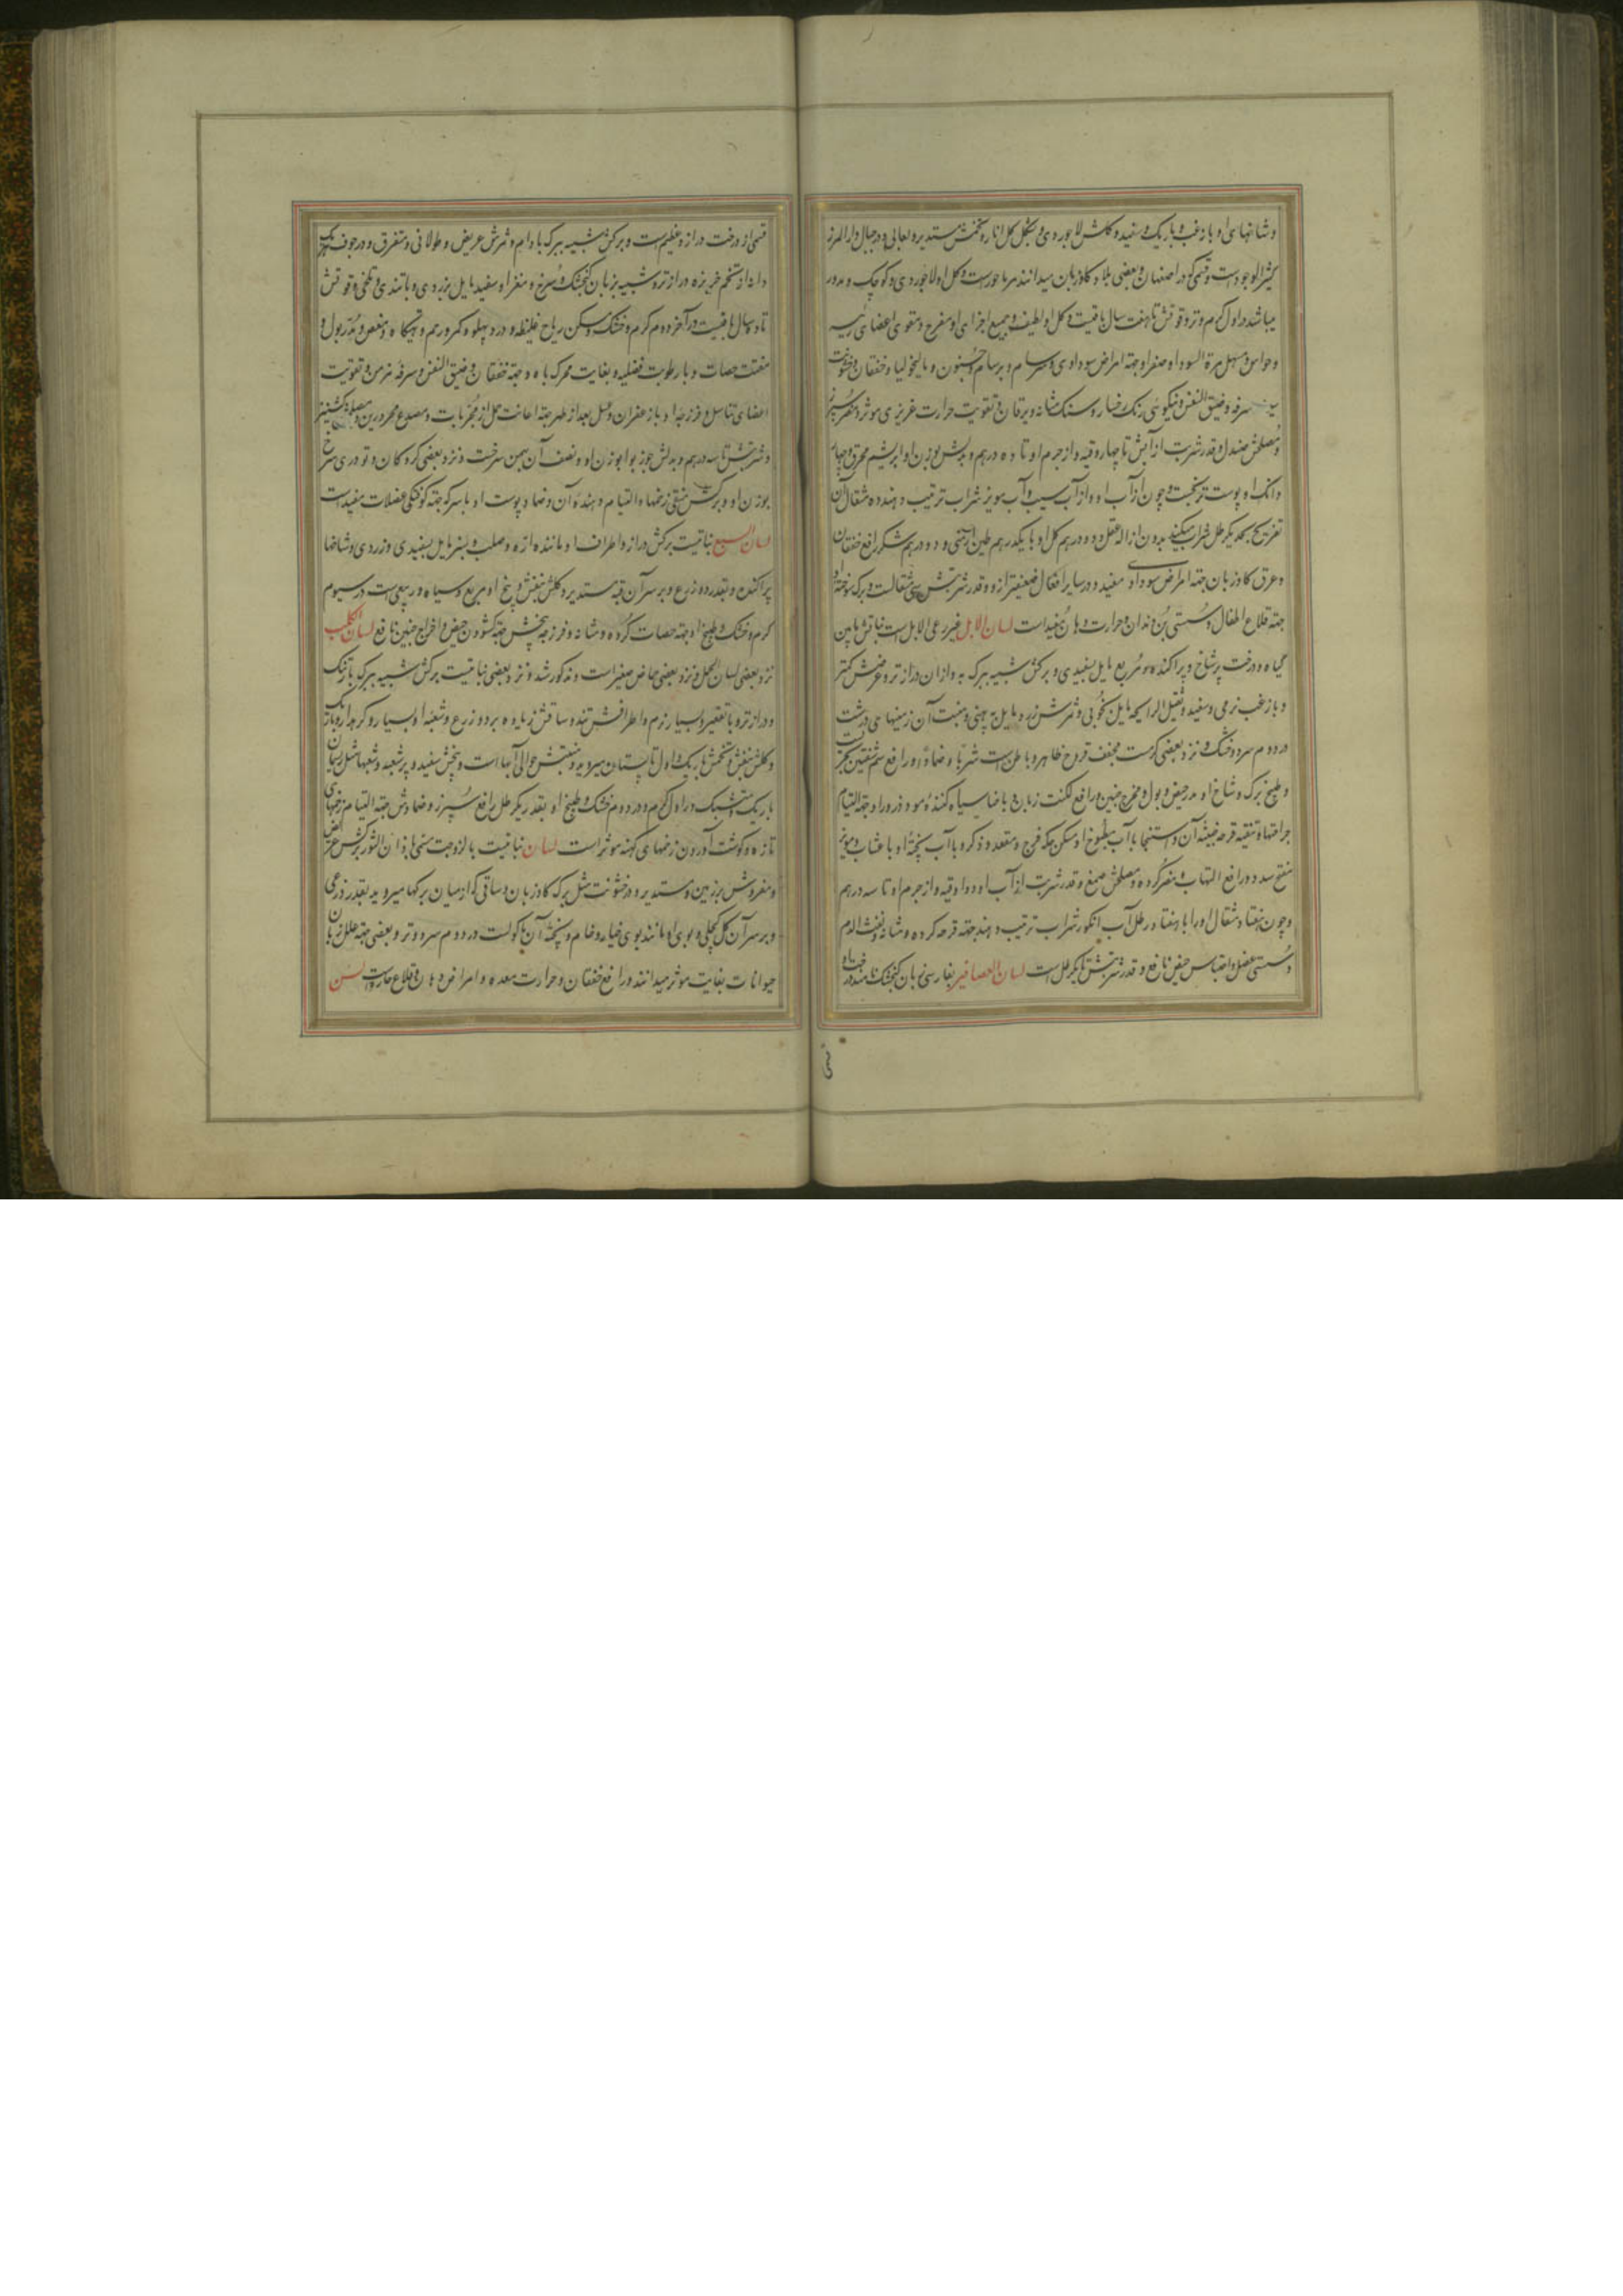 و شاخهای او با زغب و باریک و سفید و کلش لاجوردی و بشکل کل انار و تخمش مستدیر و لعابی و در جبال دارالمرز
کثیرالوجود است و قسمی که در اصفهان و بعضی بلاد کاوزبان میدانند مرماحور است و کل او لاجوردی و کوچک و مدور
میباشد در اول کرم و تر و قوتش تا هفت سال باقیست و کل او لطیف و جمیع اجزای او مفرح و مقوی اعضای رئیسه
و حواس و مسهل مرة السودا و صفرا و جهة امراض سوداوی و سرسام و برسام و جنون و مالیخولیا و خفقان و خشونت
سینه و سرفه و ضیق النفس و نیکوئی رنک رخسار و سنک مثانه و یرقان و تقویت حرارت غریزی موثر و مضر سپرز
و مصلحش صندل و قدر شربت از آبش تا چهار وقیه و از جرم او تا ده درهم و بدلش بوزن او ابریشم محرق و چهار
دانک او پوست ترنجست و چون از آب او و از آب سیب و آب مویز شراب ترتیب دهند ده مثقال آن
تفریح بحد یکرطل شراب میکند بدون ازاله عقل و دو درهم کل او با یکدرهم طین ارمنی و دو درهم شکر رافع خفقان
و عرق کاوزبان جهة امراض سوداوی مفید و در سایر افعال ضعیفتر از او و قدر شربتش سی مثقالست و برک سوخته او
جهة قلاع اطفال و سستی بن دندان و حرارت دهان مفید است لسان الابل غیر رعی الابل است نباتش مابین
کیاه و درخت پرشاخ و پراکنده و مربع مایل بسفیدی و برکش شبیه ببرک به و از آن درازتر و عرضش کمتر
و با زغب نرمی و سفید و ثقیل الرایحه مایل بخوبی و ثمرش زرد مایل به پهنی و منبت آن زمینهای درشت
در دوم سرد و خشک و نزد بعضی کرمست مجفف قروح ظاهر و باطن است شربا و ضمادا و رافع سم شفنین بحریست
و طبیخ برک و شاخ او مدر حیض و بول و مخرج جنین و رافع لکنت زبان و با خضاب سیاه کننده مو و ذرور او جهة التیام
جراحتها و تنقیه قرحه خبیثه آن و استنجا با آب مطبوخ او مسکن حکه فرج و مقعد و ذکر و با آب پخته او با عناب و مویز
مفتح سدد و رافع التهاب و مضر کرده و مصلحش صمغ و قدر شربت از آب او دو وقیه و از جرم او تا سه درهم
و چون هفتاد مثقال او را با هفتاد رطل آب انکور شراب ترتیب دهند جهة قرحه کرده و مثانه و نفث الدم
و سستی عضل و احتباس حیض نافع و قدر شربتش تا یکرطل است لسان العصافیر بفارسی زبان کنجشک نامند و درخت او
قسمی از درخت دراز و عظیم است و برکش شبیه ببرک بادام و ثمرش عریض و طولانی و متفرق و در جوف هر یک
دانه از تخم خربزه درازتر و شبیه بزبان کنجشک و سرخ و مغز او سفید مایل بزردی و با تندی و تلخی و قوتش
تا دو سال باقیست در آخر دوم کرم و خشک و مسکن ریاح غلیظه و درد پهلو و کمر و رحم و تهیکاه و مغص و مدر بول و
مفتت حصات و با رطوبت فضلیه و بغایت محرک باه و جهة خفقان و ضیق النفس و سرفه مزمن و تقویت
اعضای تناسل و فرزجه او با زعفران و عسل بعد از طهر جهة اعانت حمل از مجربات و مصدع محرورین و مصلحش کشنیز
و شربتش تا سه درهم و بدلش جوز بوا بوزن او و نصف آن بهمن سرخست و نزد بعضی کردکان و تودری سرخ
بوزن او و برکش منقی زخمها و التیام دهنده آن و ضماد پوست او با سرکه جهة کوفتکی عضلات مفید است
لسان السبع نباتیست برکش دراز و اطراف او مانند اره و صلب و سبز مایل بسفیدی و زردی و شاخها
پراکنده و بقدر دو زرع و بر سر آن قبه مستدیر و کلش بنفش و بیخ او مربع و سیاه و ربیعی است در سیوم
کرم و خشک و طبیخ او جهة حصات کرده و مثانه و فرزجه بیخش جهة کشودن حیض و اخراج جنین نافع لسان الکلب
نزد بعضی لسان الحمل و نزد بعضی حماض صغیر است و مذکور شد و نزد بعضی نباتیست برکش شبیه ببرک بارتنک
و درازتر و با تقعیر و بسیار نرم و اطرافش تند و ساقش زیاده بر دو زرع و شعبه او بسیار و کره دار و باریک
و کلش بنفش و تخمش باریک و اول تابستان میروید و منبتش حوالی آبها است و بیخش سفید و پرشعبه و شعبها مثل ریسمان
باریک متشبک در اول کرم و در دوم خشک و طبیخ او بقدر یکرطل رافع سپرز و ضمادش جهة التیام زخمهای
تازه و کوشت آوردن زخمهای کهنه موثر است لسان نباتیست با لزوجت مسمی باذان الثور برکش عریض
و مفروش بر زمین و مستدیر و در خشونت مثل برک کاوزبان و ساقی که از میان برکها میروید بقدر زرعی
و بر سر آن کل کحلی و بوی او مانند بوی خیار و خام و پخته آن ماکولست در دوم سرد و تر و بعضی جهة علل زبان
حیوانات بغایت موثر میدانند و رافع خفقان و حرارت معده و امراض دهان و قلاع حار است لسن